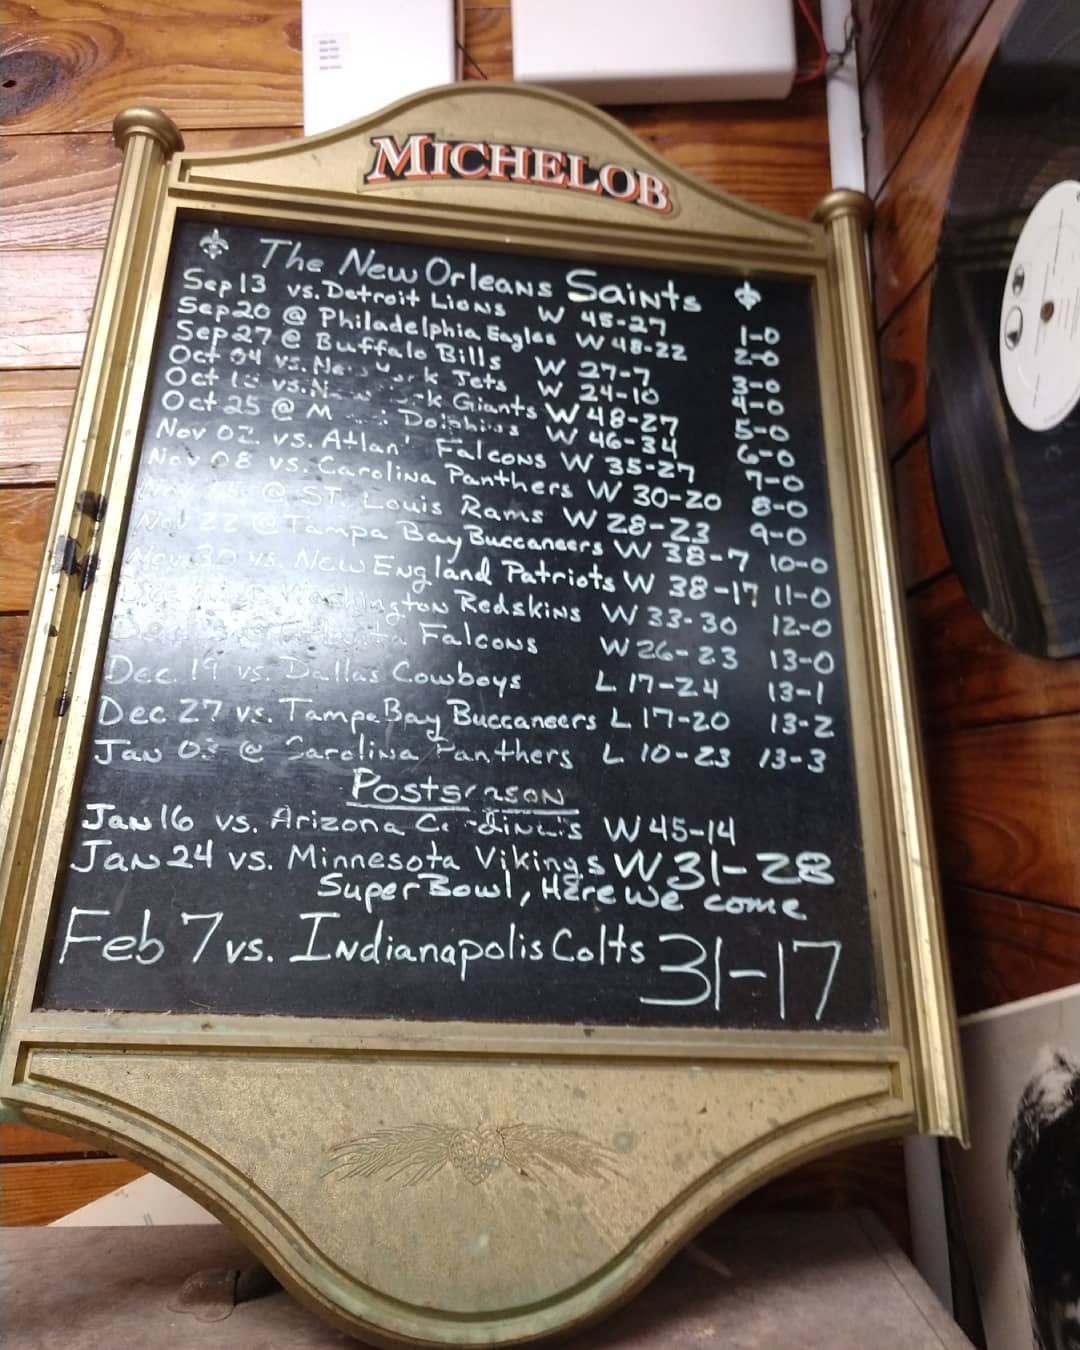 MICHELOB
The New Orleans Saints
Sep 13 vs. Detroit Lions W 45-27 1-0
Sep 20 @ Philadelphia Eagles W 48-22 2-0
Sep 27 @ Buffalo Bills W 27-7 3-0
Oct 04 vs. New York Jets W 24-10 4-0
Oct vs. Giants W 48-27 5-0
Oct 25 @ Dolphins W 46-34 6-0
Nov 02 vs. Atlan' Falcons W 35-27 7-0
Nov 08 vs. Carolina Panthers W 30-20 8-0
@ ST. Louis Rams W 28-23 9-0
Nov 22 @ Tampa Bay Buccaneers W 38-7 10-0
Nov 30 vs. New England Patriots W 38-17 11-0
Washington Redskins W 33-30 12-0
Falcons W 26-23 13-0
Dec. 19 vs. Dallas Cowboys L 17-24 13-1
Dec 27 vs. Tampa Bay Buccaneers L 17-20 13-2
Jan @ Carolina Panthers L 10-23 13-3
Postseason
Jan 16 vs. Arizona Cardinals W 45-14
Jan 24 vs. Minnesota Vikings W 31-28
Super Bowl, Here we come
Feb 7 vs. Indianapolis Colts 31-17